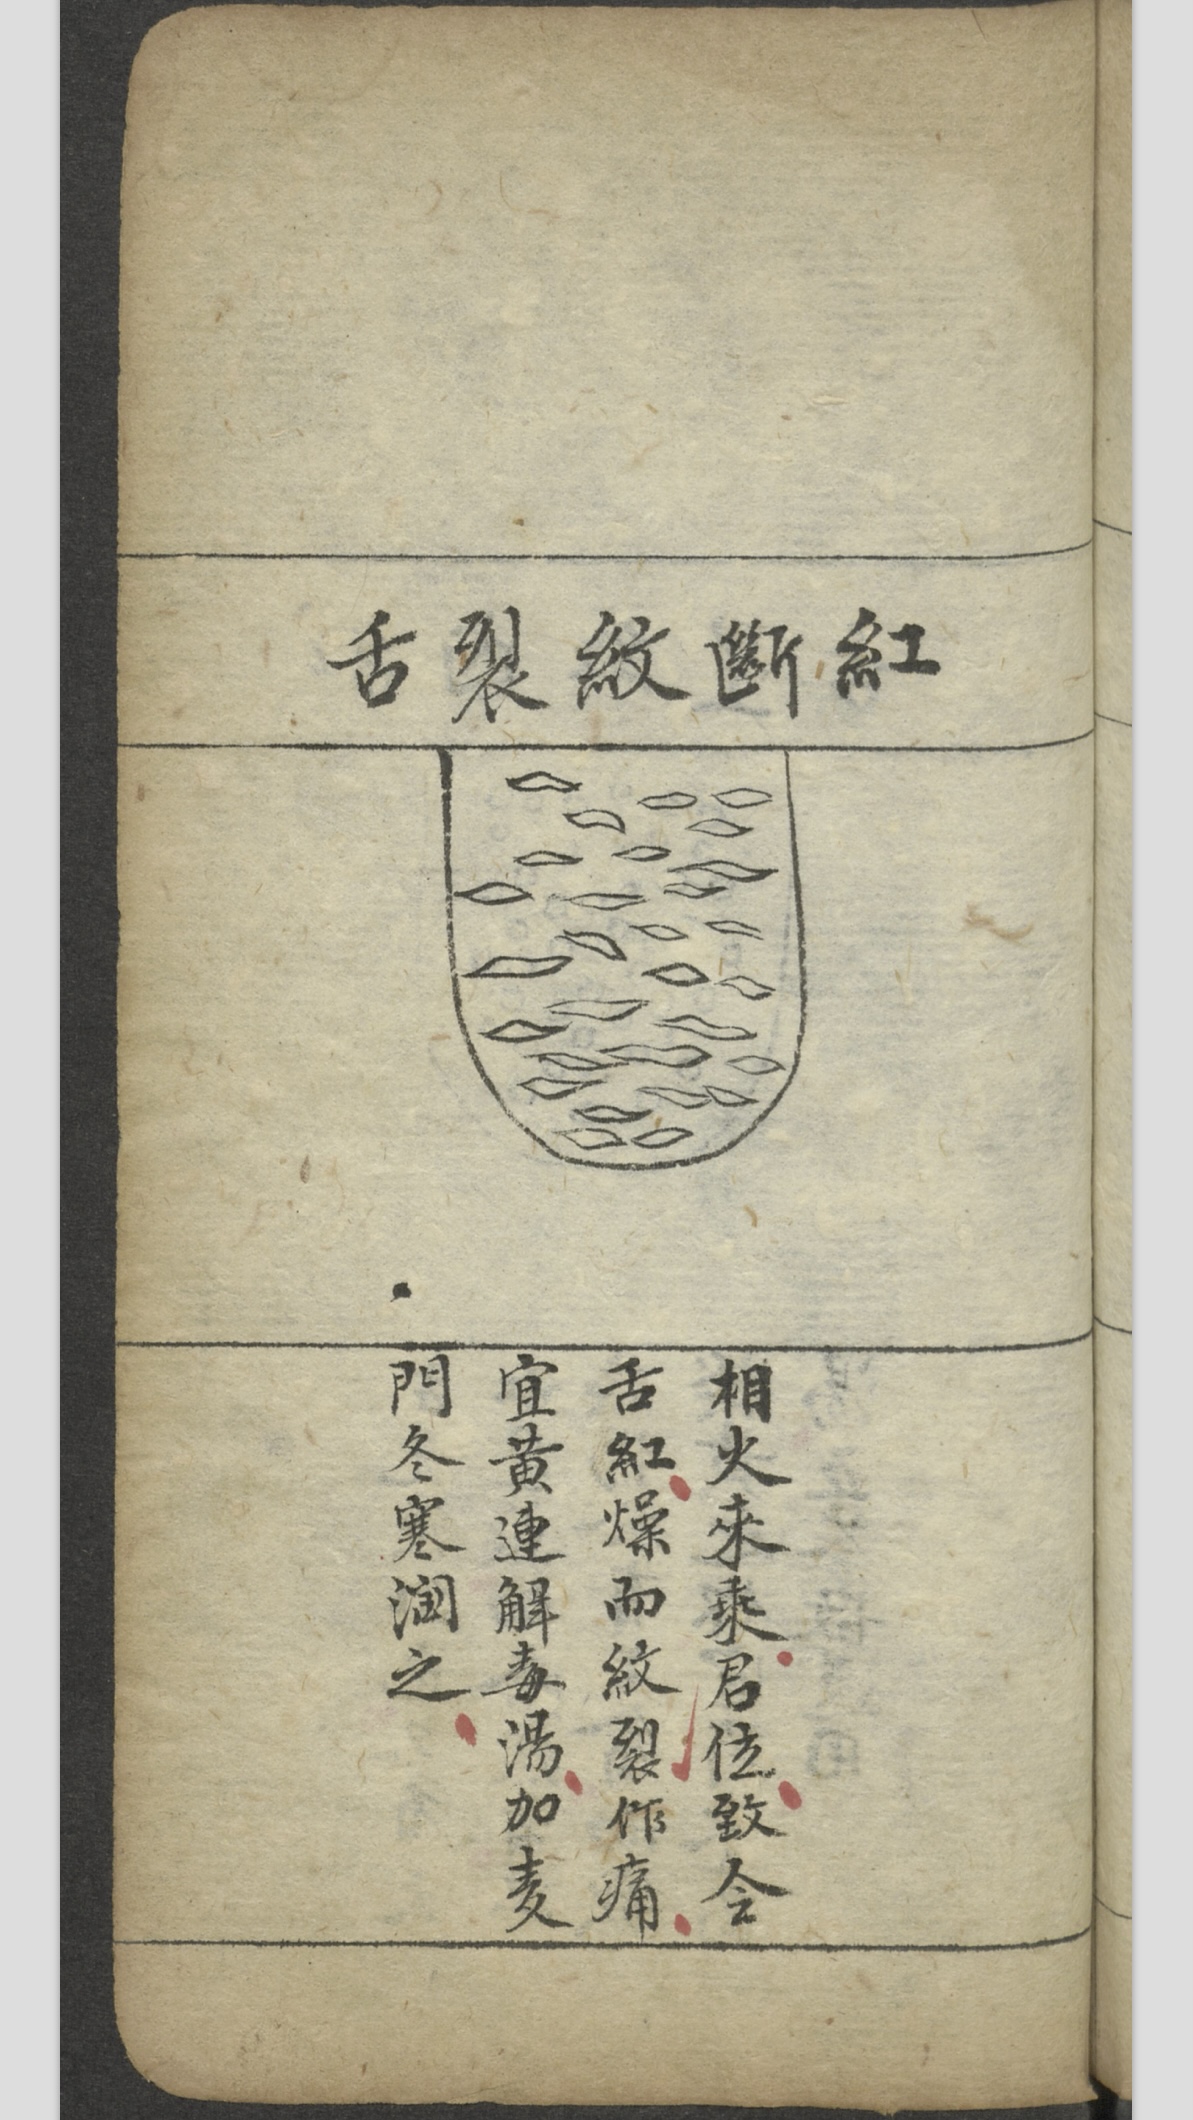 紅斷紋裂舌
相火來乘君位致令
舌紅燥而紋裂作痛
宜黃連解毒湯加麦
門冬寒潤之